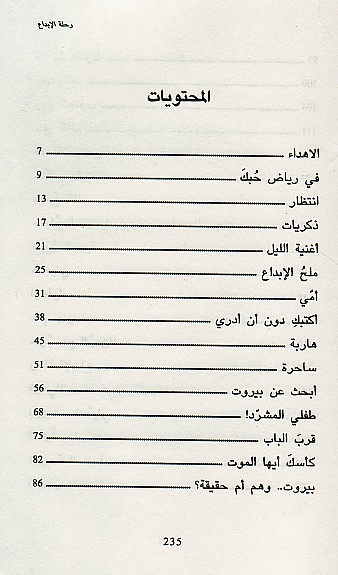 رحلة الإبداع
المحتويات
الاهداء 7
في رياض حُبكَ 9
انتظار 13
ذكريات 17
أغنية الليل 21
ملحُ الإبداع 25
أمّي 31
اكتبكِ دون أن أدري 38
هاربة 45
ساحرة 51
أبحث عن بيروت 56
طفلي المشرّد! 68
قربَ الباب 75
كأسكَ أيها الموت 82
بيروت.. وهم أم حقيقة؟ 86
235